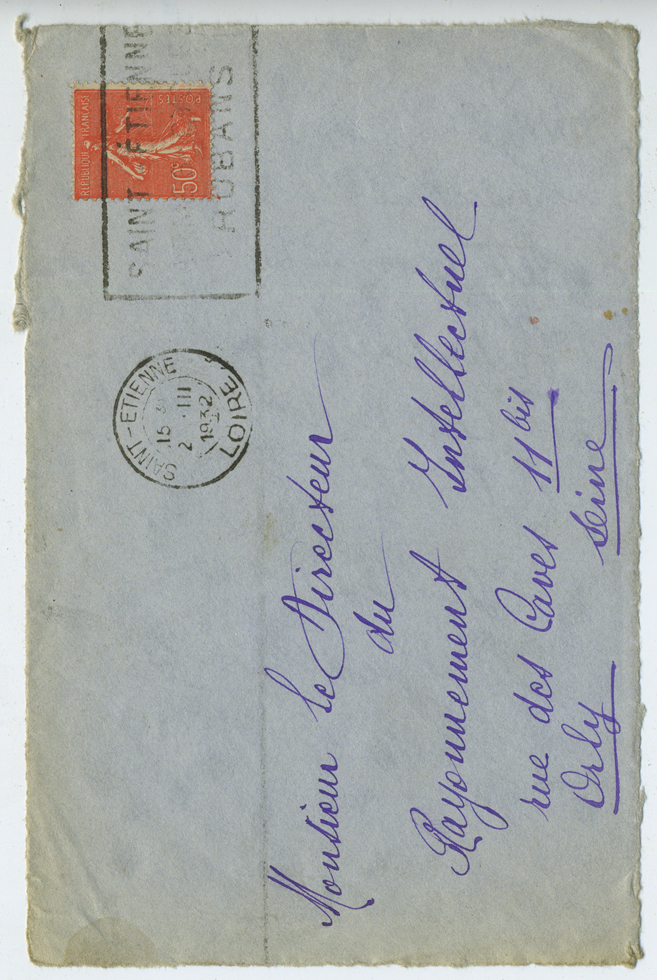 SAINT ÉTIENNE
RUBANS
RÉPUBLIQUE FRANÇAISE
POSTES
50c
SAINT-ETIENNE
15
2 III
1932
LOIRE
Monsieur le Directeur
du
Rayonnement Intellectuel
rue des Caves 11bis
Orly Seine